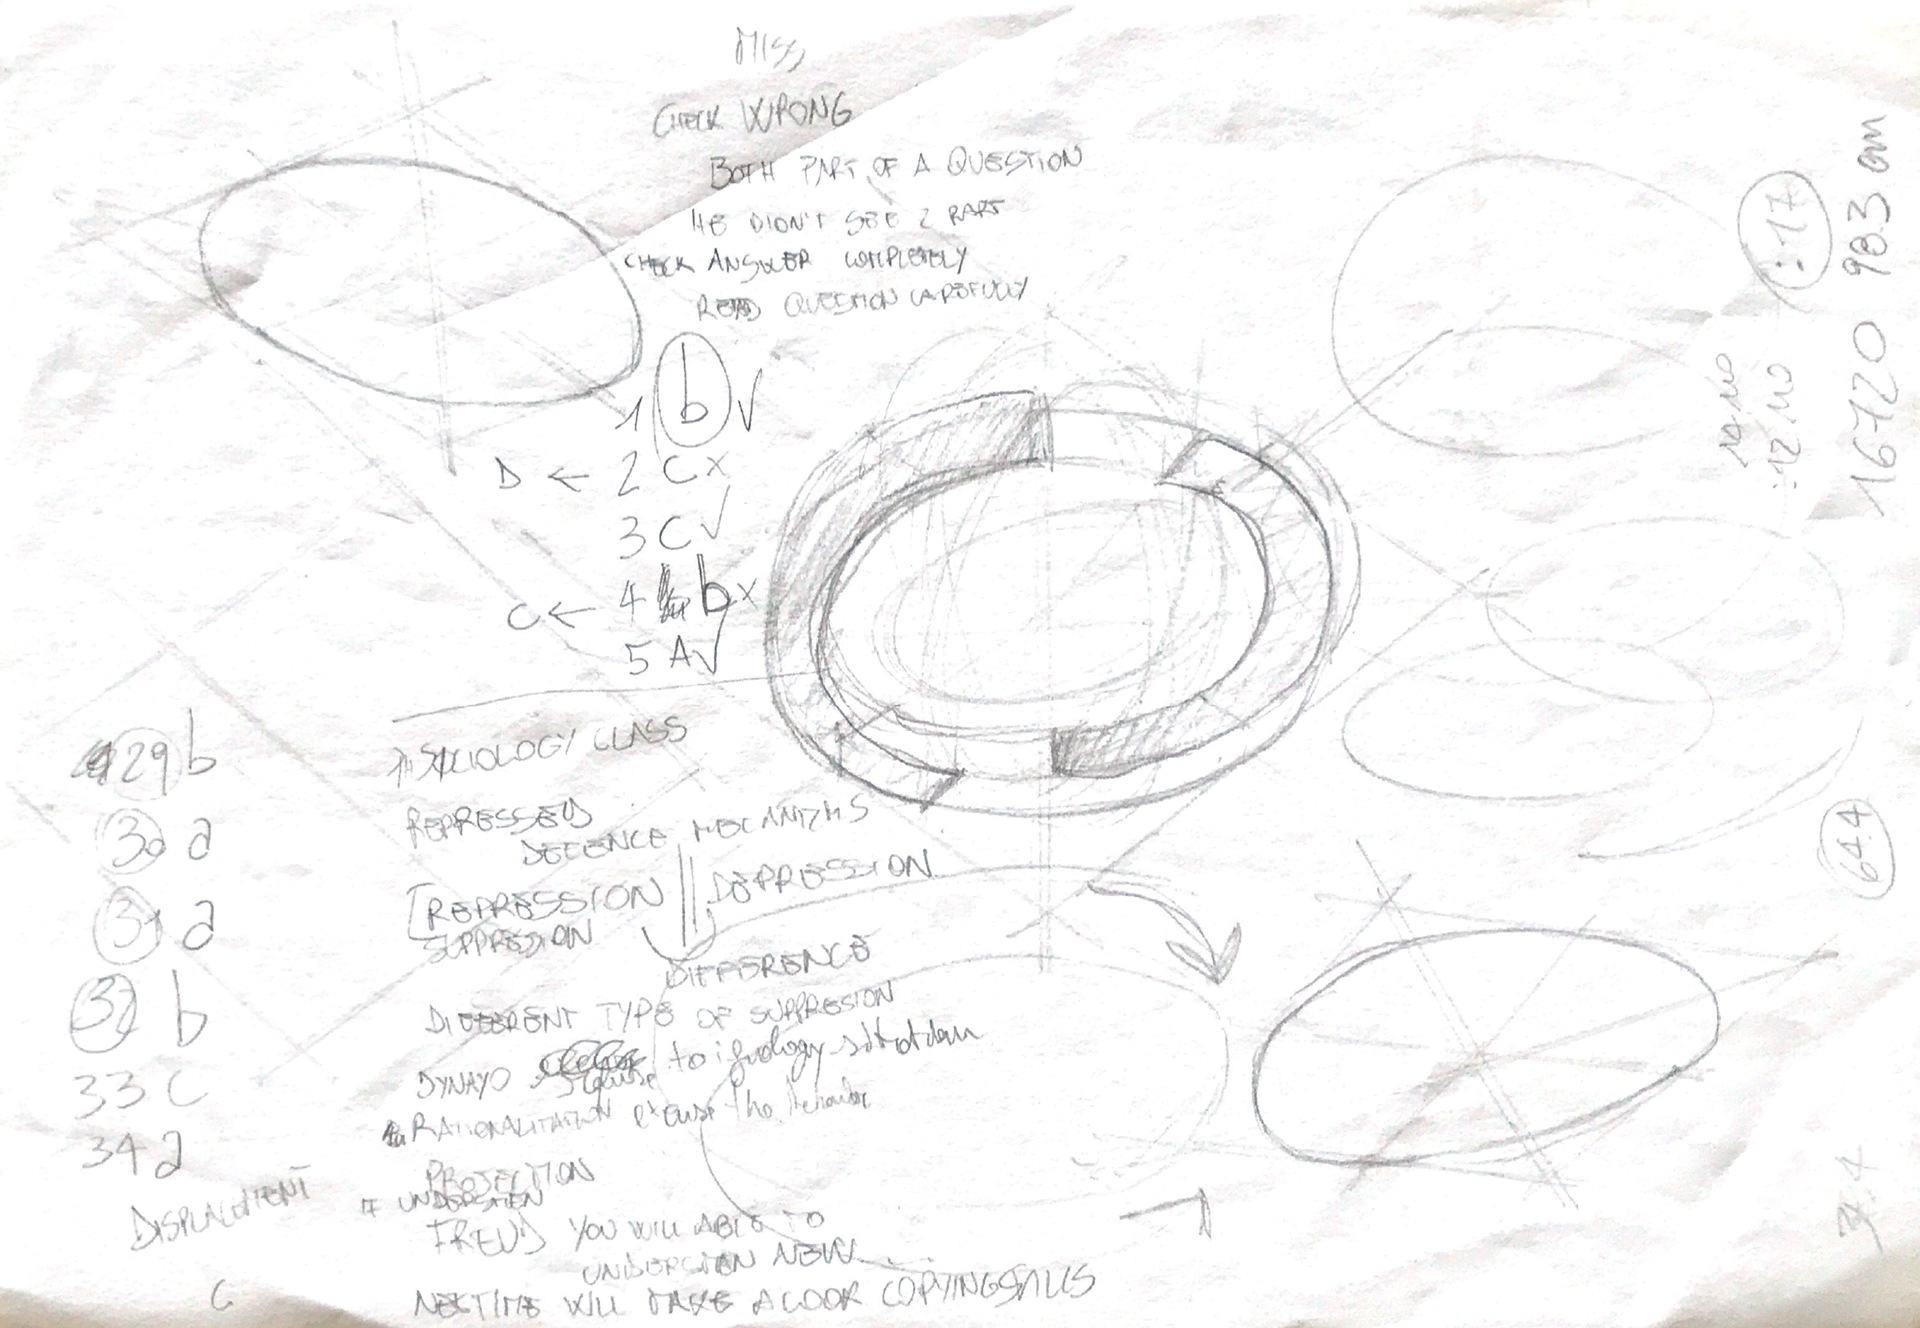 MISS
CHECK WRONG
BOTH PART OF A QUESTION
HE DIDN'T SEE 2 PART
CHECK ANSWER COMPLETELY
READ QUESTION CAREFULLY
1 b ✓
D ← 2 C x
3 C ✓
C ← 4 b x
5 A ✓
29 b
30 a
31 a
32 b
33 C
34 a
DISPLACEMENT
C
SOCIOLOGY CLASS
REPRESSED
DEFENCE MECANIZMS
[REPRESSION DEPRESSION
SUPPRESSION
DIFFERENCE
DIFFERENT TYPE OF SUPPRESION
to
RATIONALITATION excuse the
PROJECTION
IF UNDERSTEN
FREUD YOU WILL ABLE TO
UNDERSTEN NEW
NEXTIME WILL MAKE A LOOK COPYINGSKILLS
:17
16720 983 am
644
34